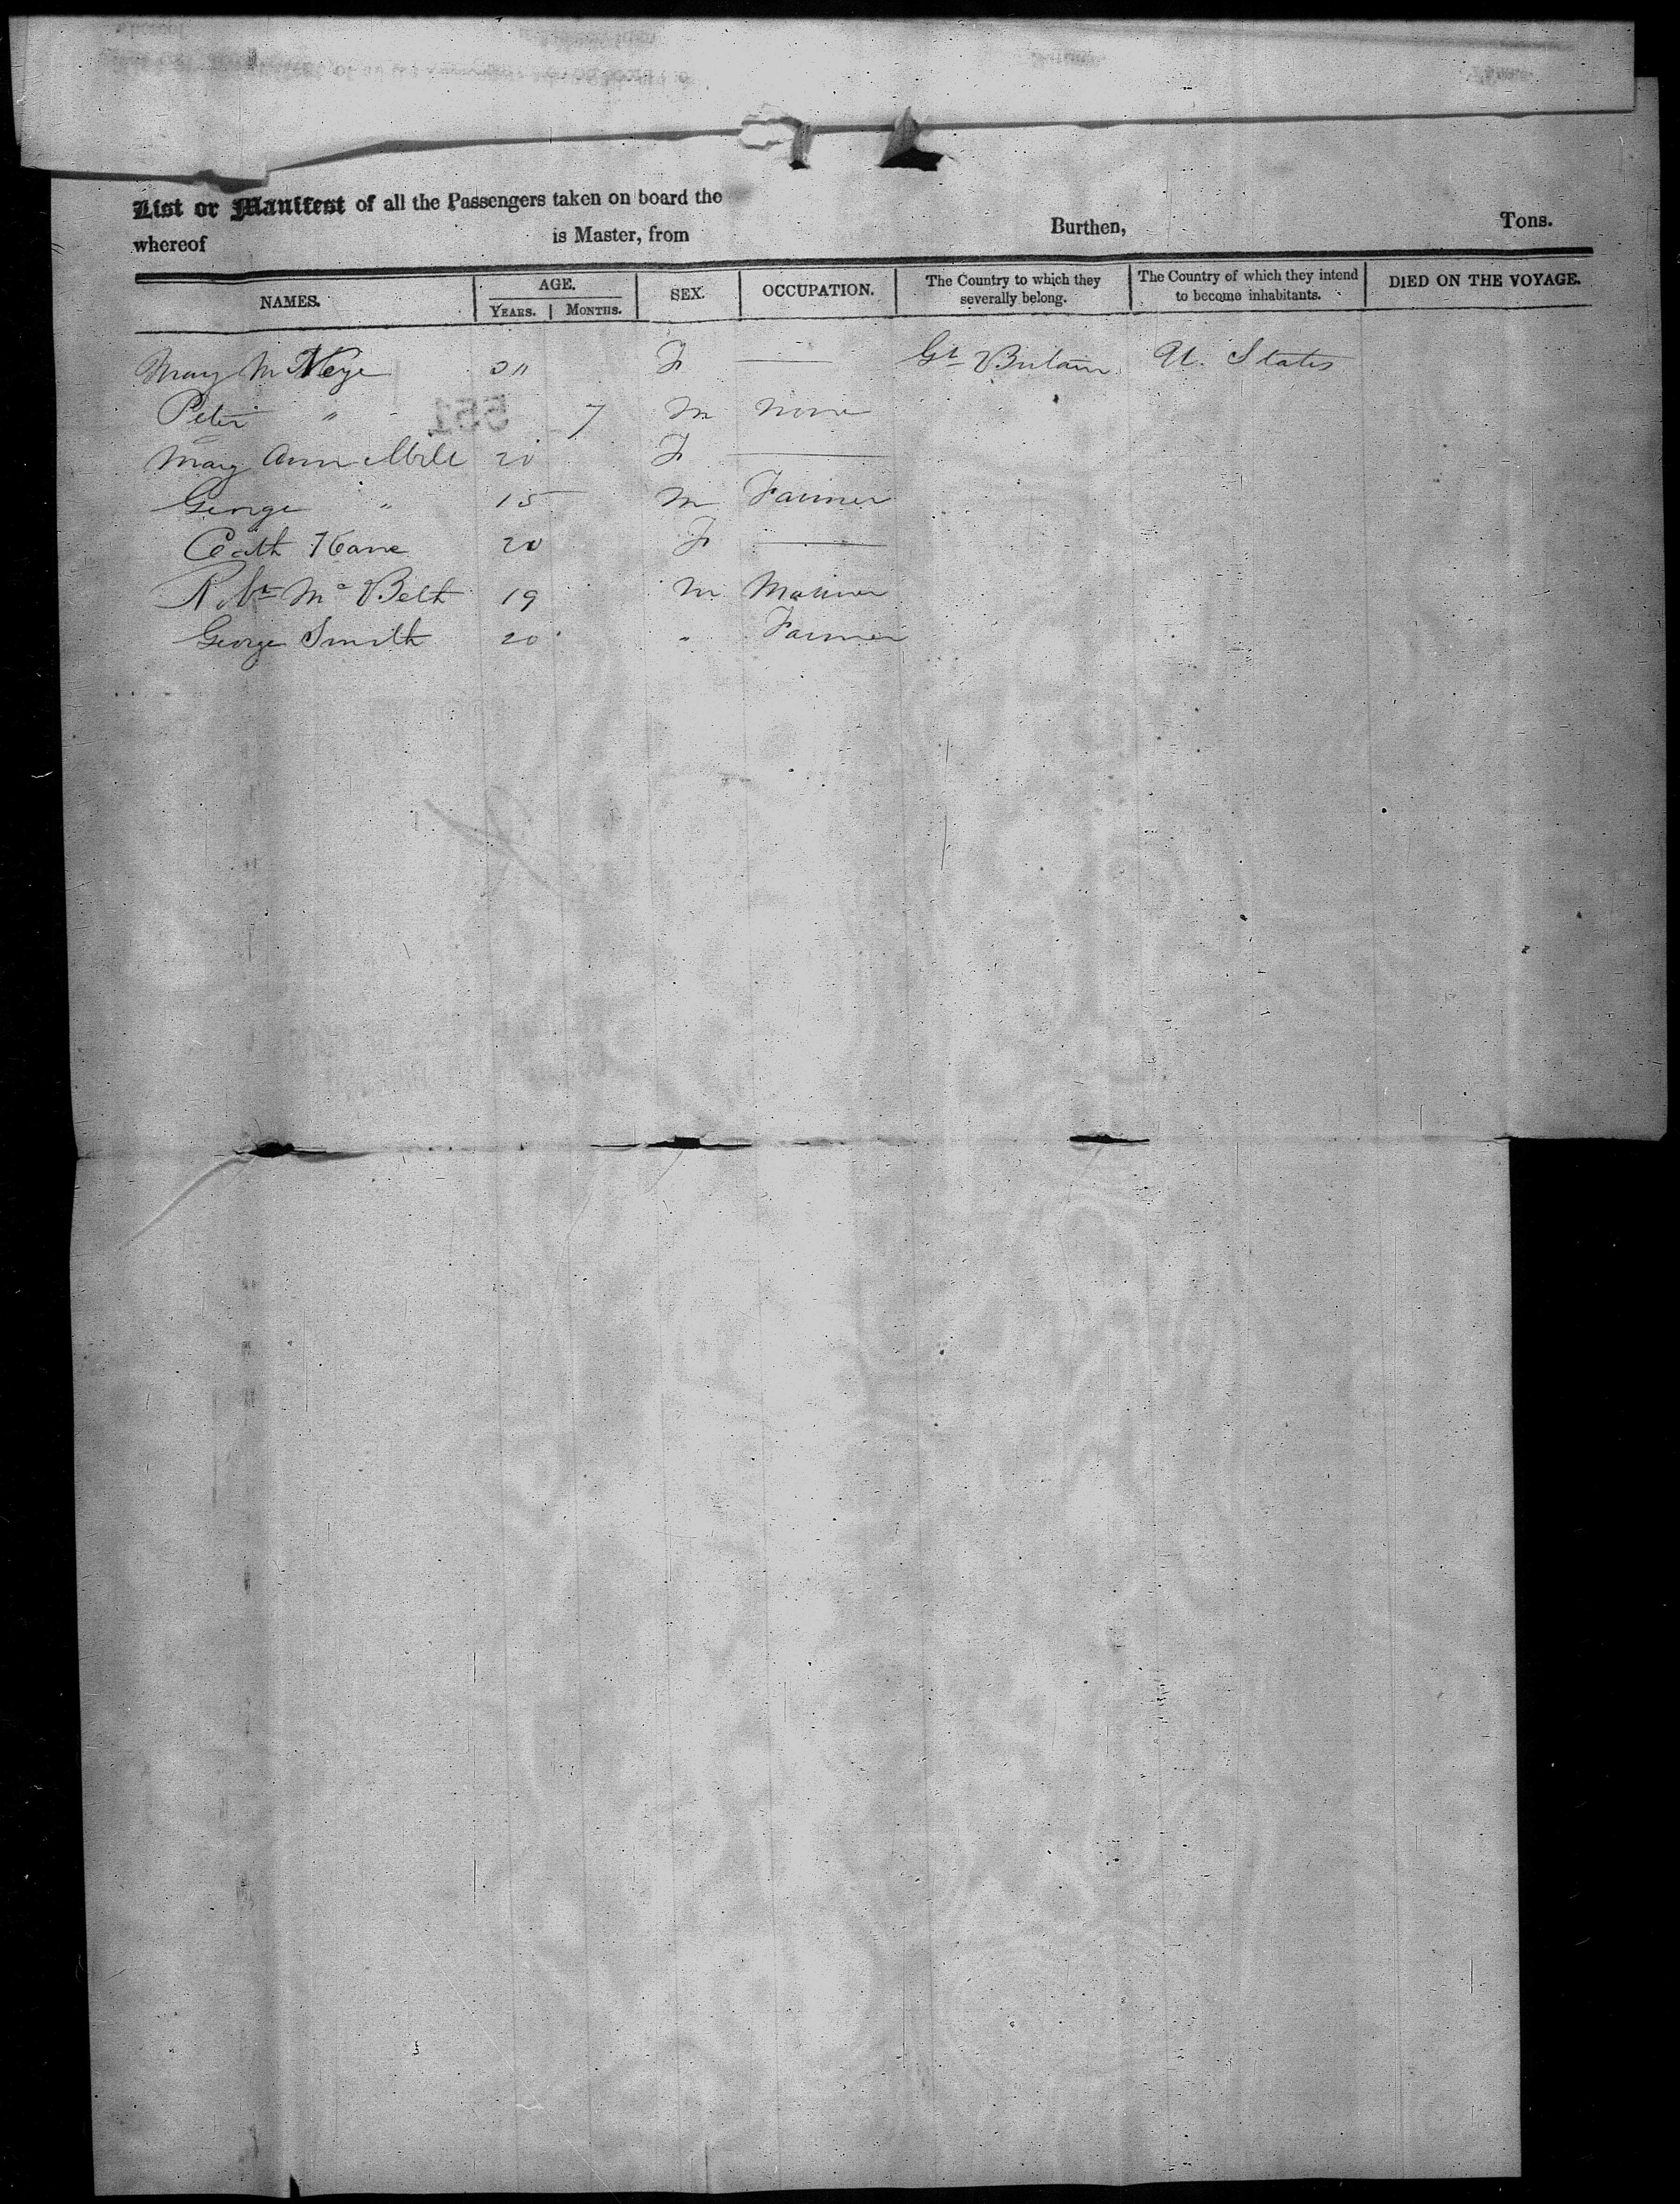 List or Manifest of all the Passengers taken on board the
whereof is Master, from Burthen, Tons.
NAMES. AGE. YEARS. MONTHS. SEX. OCCUPATION. The Country to which they severally belong. The Country of which they intend to become inhabitants. DIED ON THE VOYAGE.
Mary F Gt Britain U. States
Peter " 7 M none
Mary Ann 20 F
George " 15 M Farmer
Cath Kane 20 F
Robt Mc Beth 19 M Mariner
George Smith 20 " Farmer